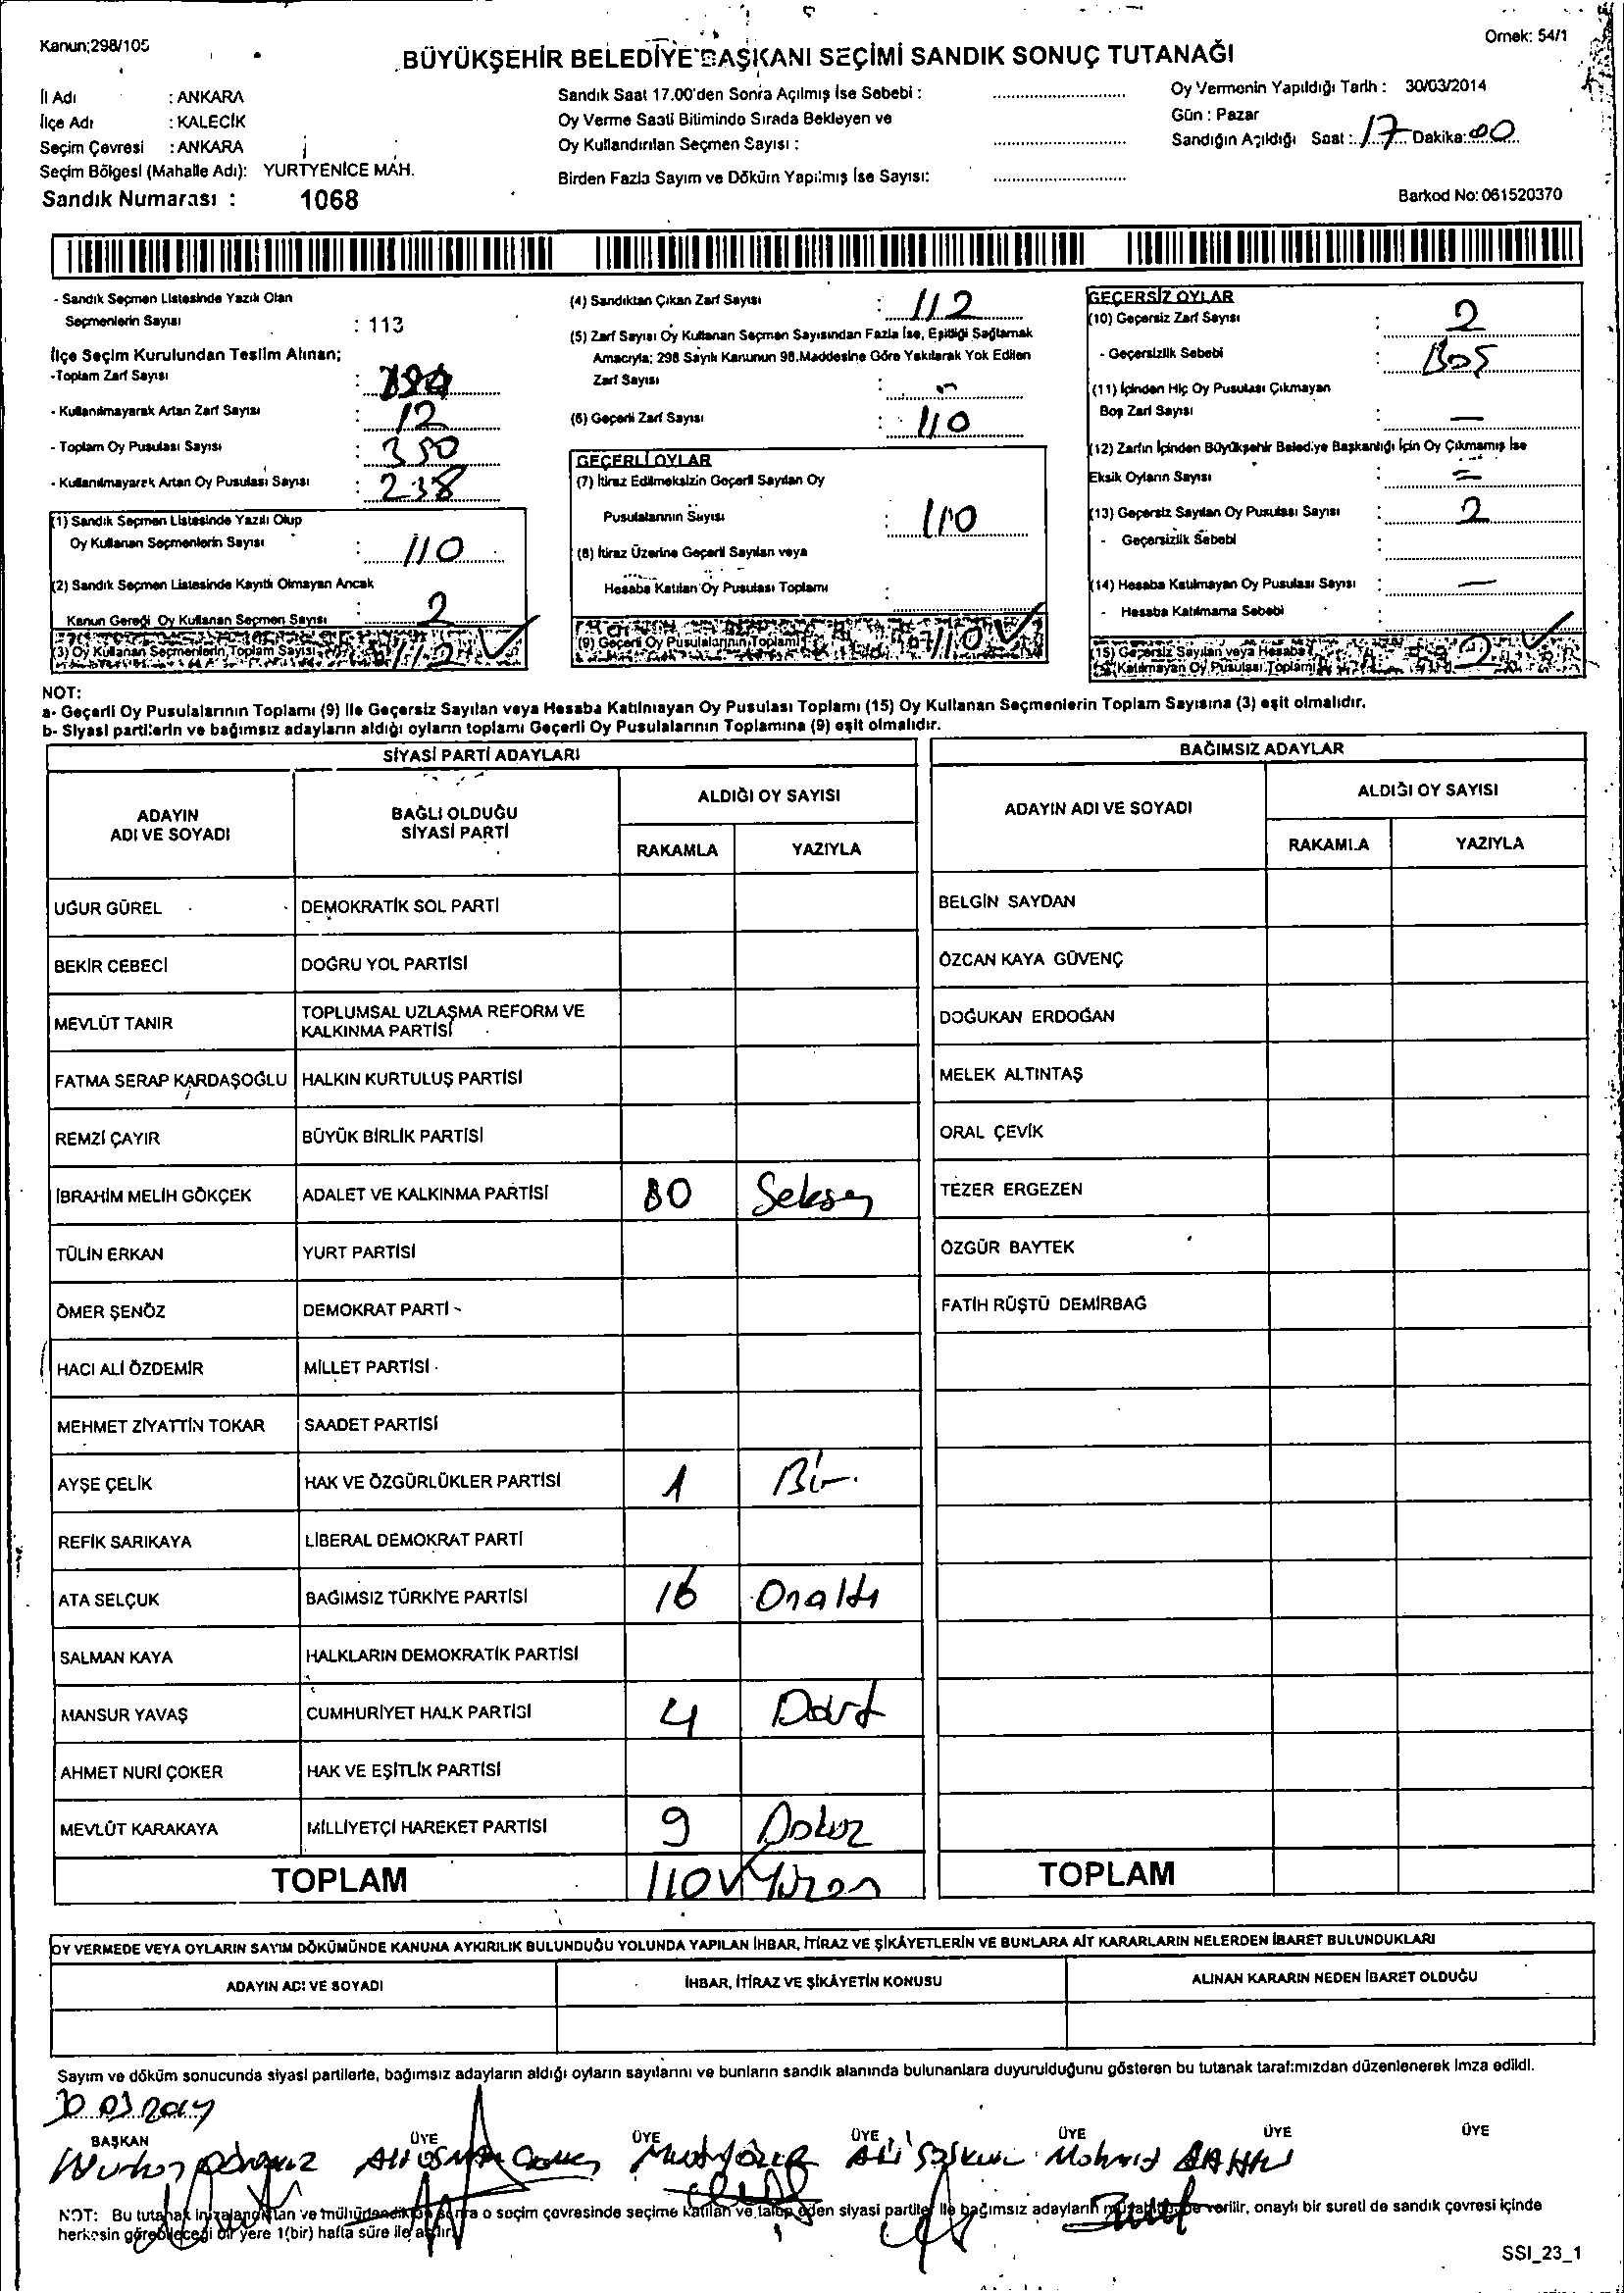 Kanun;298/105
Örnek: 54/1
BÜYÜKŞEHİR BELEDİYE BAŞKANI SEÇİMİ SANDIK SONUÇ TUTANAĞI
İl Adı : ANKARA
İlçe Adı : KALECİK
Seçim Çevresi : ANKARA
Seçim Bölgesi (Mahalle Adı): YURTYENİCE MAH.
Sandık Numarası : 1068
Sandık Saat 17.00'den Sonra Açılmış İse Sebebi :
Oy Verme Saati Bitiminde Sırada Bekleyen ve
Oy Kullandırılan Seçmen Sayısı :
Birden Fazla Sayım ve Döküm Yapılmış İse Sayısı:
Oy Vermenin Yapıldığı Tarih : 30/03/2014
Gün : Pazar
Sandığın Açıldığı Saat : 17 Dakika: 00
Barkod No: 061520370
- Sandık Seçmen Listesinde Yazılı Olan
Seçmenlerin Sayısı : 113
İlçe Seçim Kurulundan Teslim Alınan;
-Toplam Zarf Sayısı :
- Kullanılmayarak Artan Zarf Sayısı : 12
- Toplam Oy Pusulası Sayısı : 350
- Kullanılmayarak Artan Oy Pusulası Sayısı : 238
(1) Sandık Seçmen Listesinde Yazılı Olup
Oy Kullanan Seçmenlerin Sayısı : 110
(2) Sandık Seçmen Listesinde Kayıtlı Olmayan Ancak
Kanun Gereği Oy Kullanan Seçmen Sayısı : 2
(3) Oy Kullanan Seçmenlerin Toplam Sayısı 112
(4) Sandıktan Çıkan Zarf Sayısı : 112
(5) Zarf Sayısı Oy Kullanan Seçmen Sayısından Fazla İse, Eşitliği Sağlamak
Amacıyla; 298 Sayılı Kanunun 98.Maddesine Göre Yakılarak Yok Edilen
Zarf Sayısı : -
(6) Geçerli Zarf Sayısı : 110
GEÇERLİ OYLAR
(7) İtiraz Edilmeksizin Geçerli Sayılan Oy
Pusulalarının Sayısı : 110
(8) İtiraz Üzerine Geçerli Sayılan veya
Hesaba Katılan Oy Pusulası Toplamı :
(9) Geçerli Oy Pusulalarının Toplamı 110
GEÇERSİZ OYLAR
(10) Geçersiz Zarf Sayısı : 2
- Geçersizlik Sebebi : Boş
(11) İçinden Hiç Oy Pusulası Çıkmayan
Boş Zarf Sayısı : —
(12) Zarfın İçinden Büyükşehir Belediye Başkanlığı İçin Oy Çıkmamış İse
Eksik Oyların Sayısı : =
(13) Geçersiz Sayılan Oy Pusulası Sayısı : 2
- Geçersizlik Sebebi :
(14) Hesaba Katılmayan Oy Pusulası Sayısı : —
- Hesaba Katılmama Sebebi :
(15) Geçersiz Sayılan veya Hesaba
Katılmayan Oy Pusulası Toplamı 2
NOT:
a- Geçerli Oy Pusulalarının Toplamı (9) İle Geçersiz Sayılan veya Hesaba Katılmayan Oy Pusulası Toplamı (15) Oy Kullanan Seçmenlerin Toplam Sayısına (3) eşit olmalıdır.
b- Siyasi partilerin ve bağımsız adayların aldığı oyların toplamı Geçerli Oy Pusulalarının Toplamına (9) eşit olmalıdır.
SİYASİ PARTİ ADAYLARI
ADAYIN ADI VE SOYADI BAĞLI OLDUĞU SİYASİ PARTİ ALDIĞI OY SAYISI
RAKAMLA YAZIYLA
UĞUR GÜREL DEMOKRATİK SOL PARTİ
BEKİR CEBECİ DOĞRU YOL PARTİSİ
MEVLÜT TANIR TOPLUMSAL UZLAŞMA REFORM VE KALKINMA PARTİSİ
FATMA SERAP KARDAŞOĞLU HALKIN KURTULUŞ PARTİSİ
REMZİ ÇAYIR BÜYÜK BİRLİK PARTİSİ
İBRAHİM MELİH GÖKÇEK ADALET VE KALKINMA PARTİSİ 80 Seksen
TÜLİN ERKAN YURT PARTİSİ
ÖMER ŞENÖZ DEMOKRAT PARTİ
HACI ALİ ÖZDEMİR MİLLET PARTİSİ
MEHMET ZİYATTİN TOKAR SAADET PARTİSİ
AYŞE ÇELİK HAK VE ÖZGÜRLÜKLER PARTİSİ 1 Bir
REFİK SARIKAYA LİBERAL DEMOKRAT PARTİ
ATA SELÇUK BAĞIMSIZ TÜRKİYE PARTİSİ 16 Onaltı
SALMAN KAYA HALKLARIN DEMOKRATİK PARTİSİ
MANSUR YAVAŞ CUMHURİYET HALK PARTİSİ 4 Dört
AHMET NURİ ÇOKER HAK VE EŞİTLİK PARTİSİ
MEVLÜT KARAKAYA MİLLİYETÇİ HAREKET PARTİSİ 9 Dokuz
TOPLAM 110 Yüzon
BAĞIMSIZ ADAYLAR
ADAYIN ADI VE SOYADI ALDIĞI OY SAYISI
RAKAMLA YAZIYLA
BELGİN SAYDAN
ÖZCAN KAYA GÜVENÇ
DOĞUKAN ERDOĞAN
MELEK ALTINTAŞ
ORAL ÇEVİK
TEZER ERGEZEN
ÖZGÜR BAYTEK
FATİH RÜŞTÜ DEMİRBAĞ
TOPLAM
OY VERMEDE VEYA OYLARIN SAYIM DÖKÜMÜNDE KANUNA AYKIRILIK BULUNDUĞU YOLUNDA YAPILAN İHBAR, İTİRAZ VE ŞİKÂYETLERİN VE BUNLARA AİT KARARLARIN NELERDEN İBARET BULUNDUKLARI
ADAYIN ADI VE SOYADI İHBAR, İTİRAZ VE ŞİKÂYETİN KONUSU ALINAN KARARIN NEDEN İBARET OLDUĞU
Sayım ve döküm sonucunda siyasi partilerle, bağımsız adayların aldığı oyların sayılarını ve bunların sandık alanında bulunanlara duyurulduğunu gösteren bu tutanak tarafımızdan düzenlenerek imza edildi.
30 03 2014
BAŞKAN ÜYE ÜYE ÜYE ÜYE ÜYE ÜYE
NOT: Bu tutanak imzalandıktan ve mühürlendikten sonra o seçim çevresinde seçime katılan ve talep eden siyasi partiler ile bağımsız adayların müşahitlerine verilir, onaylı bir sureti de sandık çevresi içinde
herkesin görebileceği bir yere 1(bir) hafta süre ile asılır.
SSI_23_1